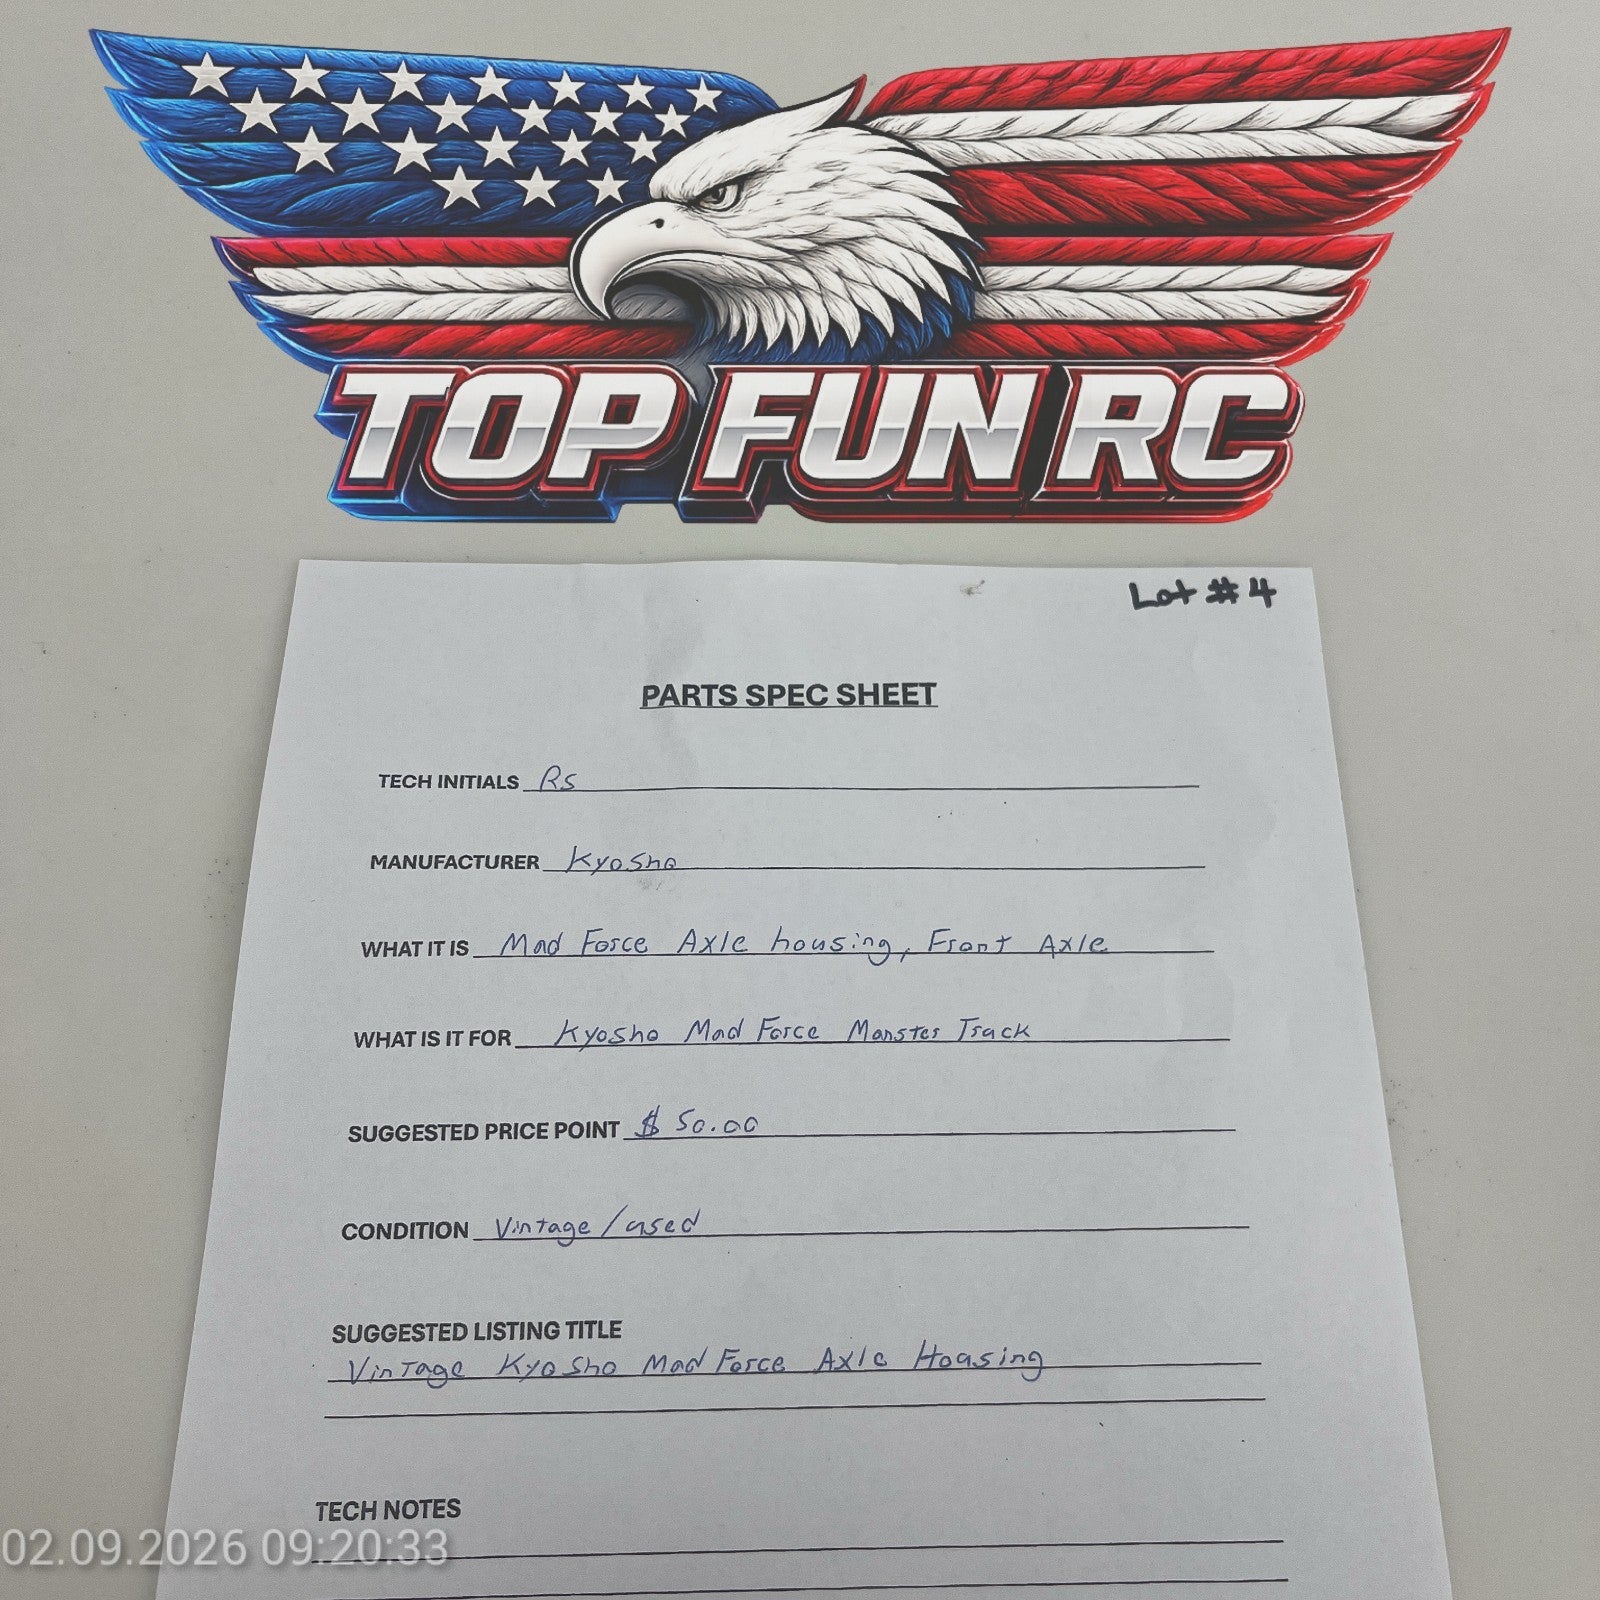 TOP FUN RC
Lot #4
PARTS SPEC SHEET
TECH INITIALS RS
MANUFACTURER Kyosho
WHAT IT IS Mad Force Axle housing, Front Axle
WHAT IS IT FOR Kyosho Mad Force Monster Truck
SUGGESTED PRICE POINT $ 50.00
CONDITION Vintage/used
SUGGESTED LISTING TITLE
Vintage Kyosho Mad Force Axle Housing
TECH NOTES
02.09.2026 09:20:33